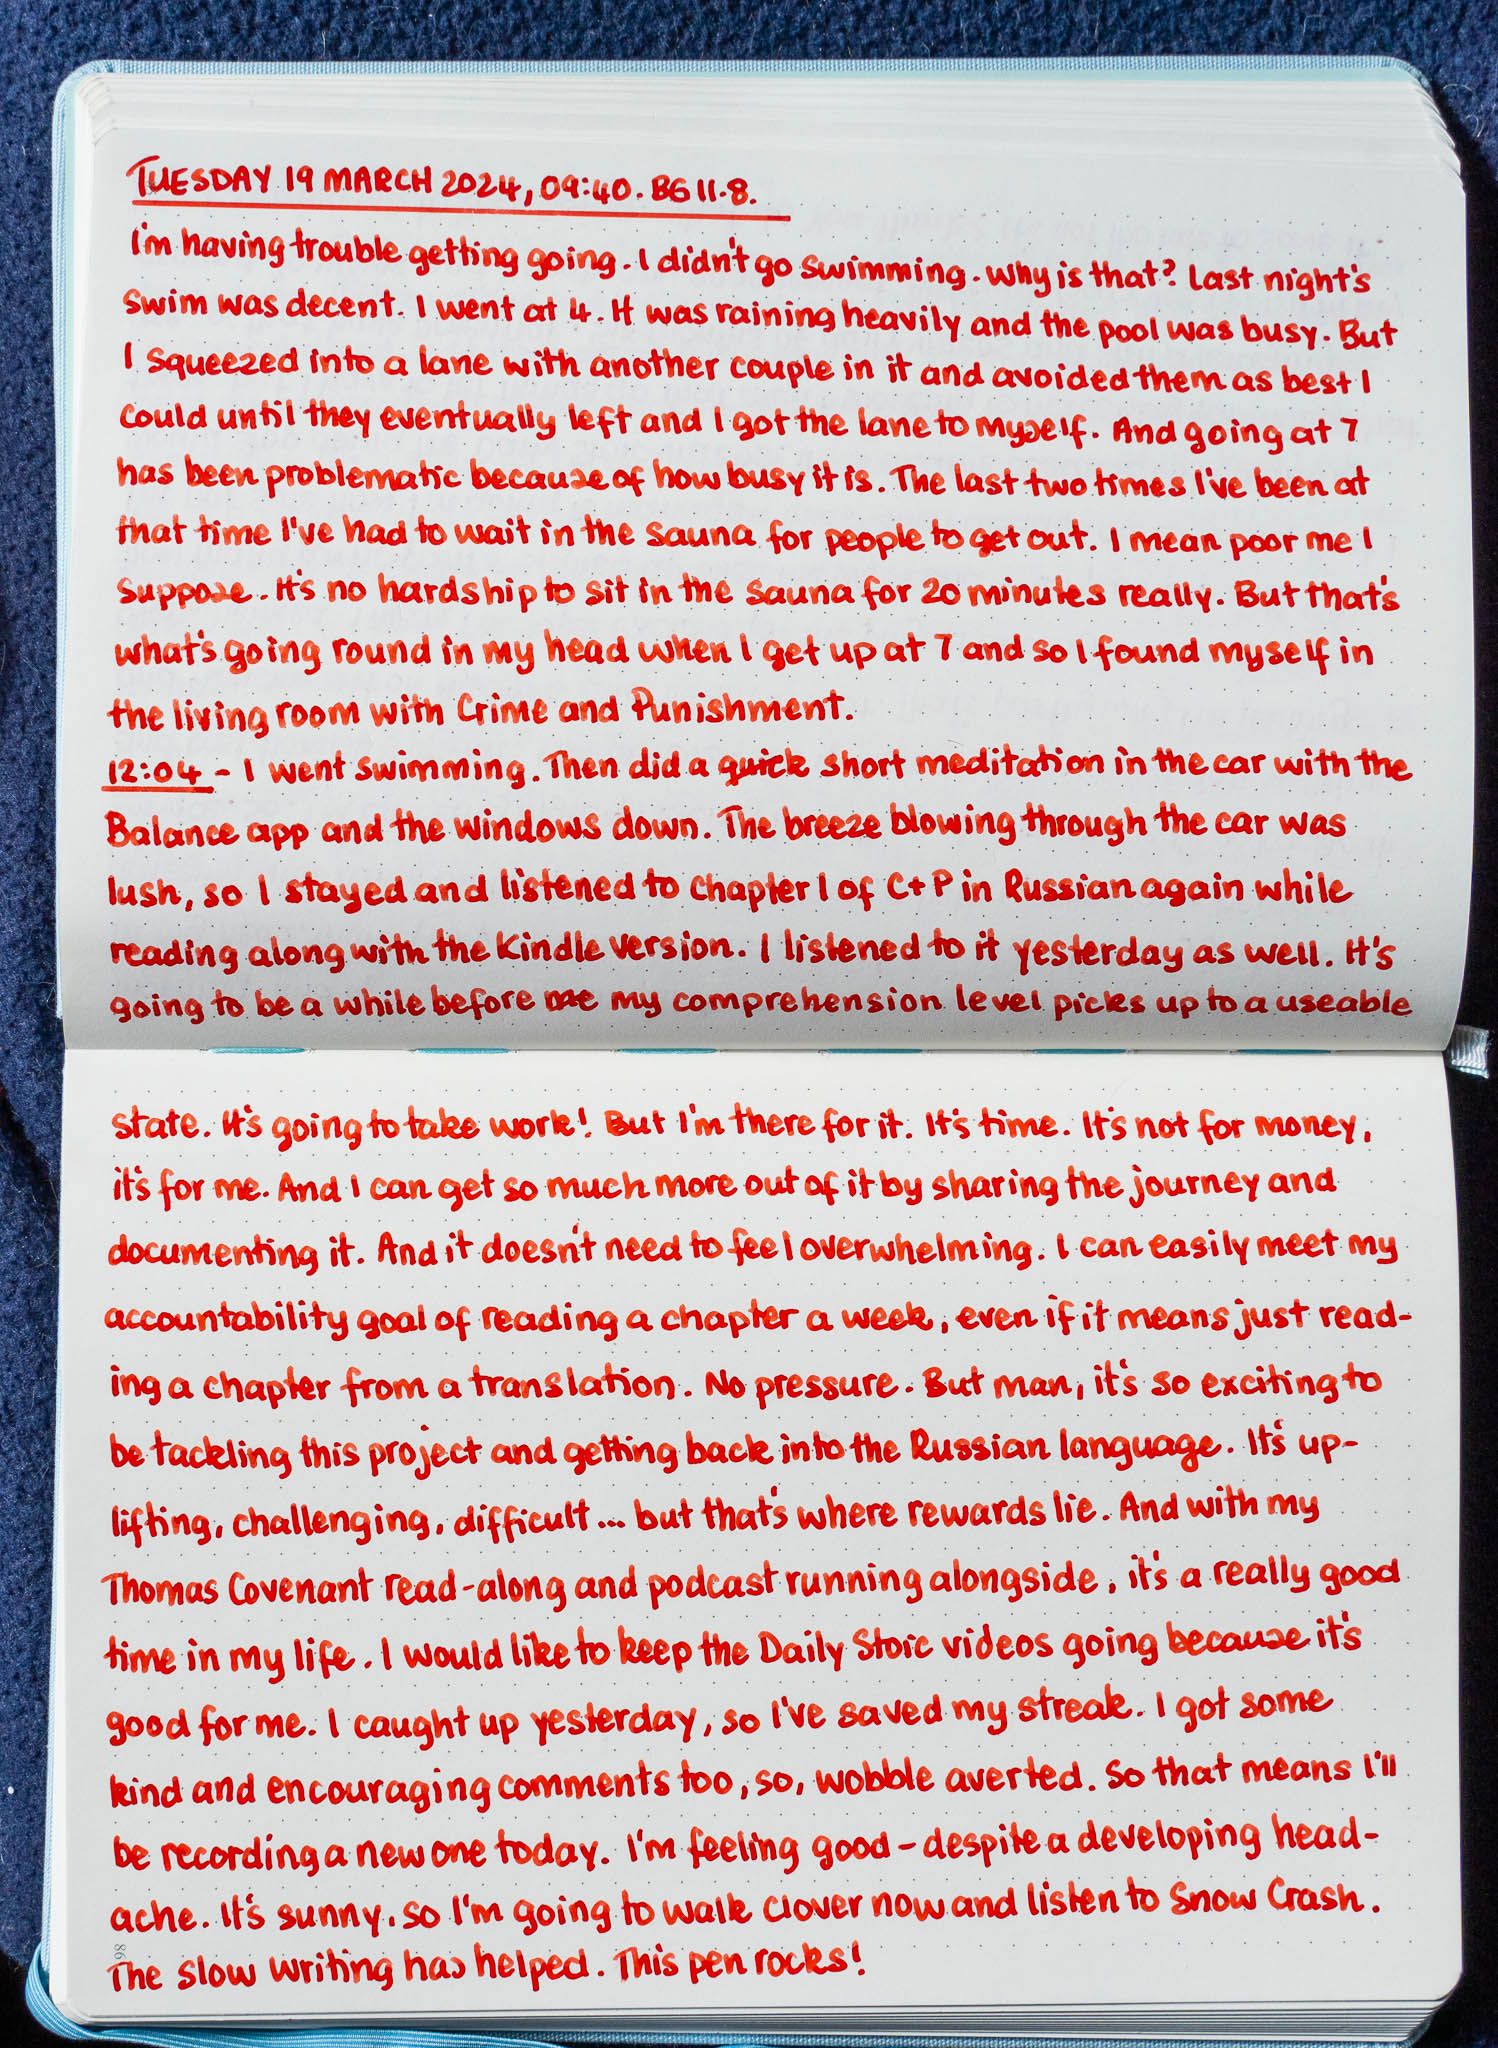 TUESDAY 19 MARCH 2024, 09:40. BG 11.8.
I'm having trouble getting going. I didn't go swimming. Why is that? Last night's
swim was decent. I went at 4. It was raining heavily and the pool was busy. But
I squeezed into a lane with another couple in it and avoided them as best I
could until they eventually left and I got the lane to myself. And going at 7
has been problematic because of how busy it is. The last two times I've been at
that time I've had to wait in the sauna for people to get out. I mean poor me I
suppose. It's no hardship to sit in the sauna for 20 minutes really. But that's
what's going round in my head when I get up at 7 and so I found myself in
the living room with Crime and Punishment.
12:04 - I went swimming. Then did a quick short meditation in the car with the
Balance app and the windows down. The breeze blowing through the car was
lush, so I stayed and listened to chapter 1 of C+P in Russian again while
reading along with the Kindle version. I listened to it yesterday as well. It's
going to be a while before me my comprehension level picks up to a useable
state. It's going to take work! But I'm there for it. It's time. It's not for money,
it's for me. And I can get so much more out of it by sharing the journey and
documenting it. And it doesn't need to feel overwhelming. I can easily meet my
accountability goal of reading a chapter a week, even if it means just read-
ing a chapter from a translation. No pressure. But man, it's so exciting to
be tackling this project and getting back into the Russian language. It's up-
lifting, challenging, difficult... but that's where rewards lie. And with my
Thomas Covenant read-along and podcast running alongside, it's a really good
time in my life. I would like to keep the Daily Stoic videos going because it's
good for me. I caught up yesterday, so I've saved my streak. I got some
kind and encouraging comments too, so, wobble averted. So that means I'll
be recording a new one today. I'm feeling good - despite a developing head-
ache. It's sunny, so I'm going to walk Clover now and listen to Snow Crash.
86
The slow writing has helped. This pen rocks!